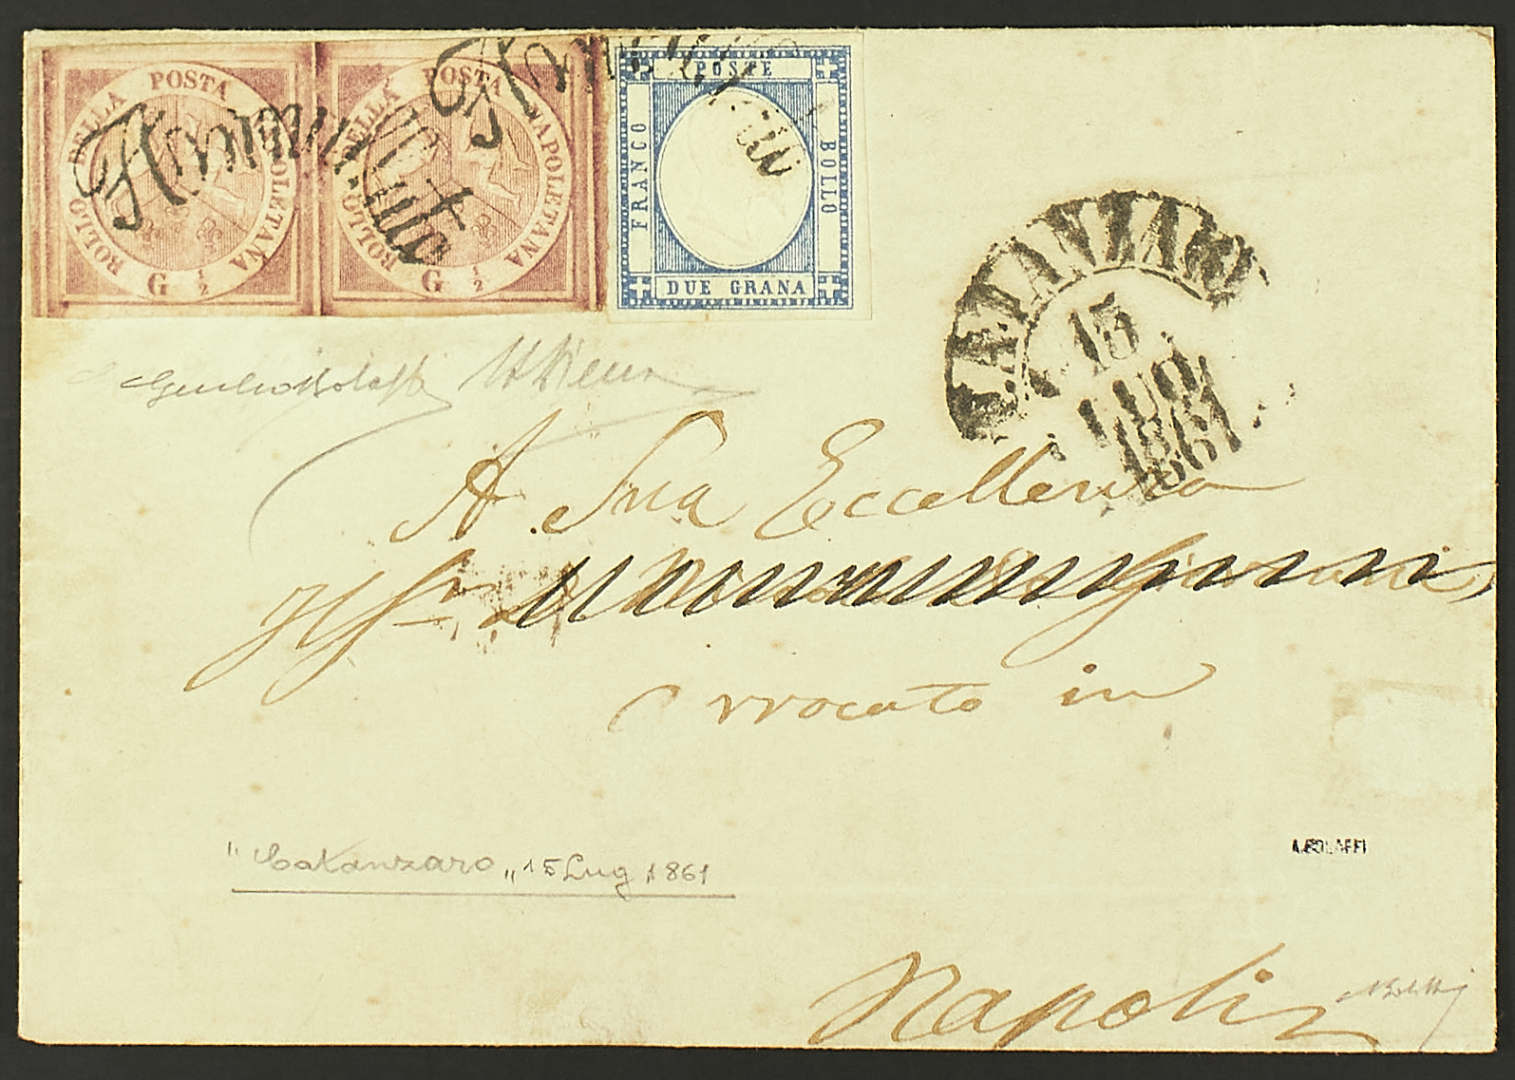 BOLLO DELLA POSTA NAPOLETANA
G 1/2
BOLLO DELLA POSTA NAPOLETANA
G 1/2
Annullato
Annullato
POSTE
FRANCO
BOLLO
DUE GRANA
CATANZARO
15
LUG
1861
A Sua Eccellenza
in
"Catanzaro" 15 Lug 1861
A.BOLAFFI
Napoli